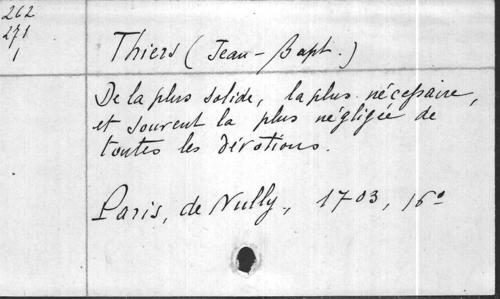 262
271
1
Thiers (Jean-Bapt.)
De la plus solide, la plus nécessaire,
et souvent la plus négligée de
toutes les dévotions.
Paris, de Nully, 1703, 16°